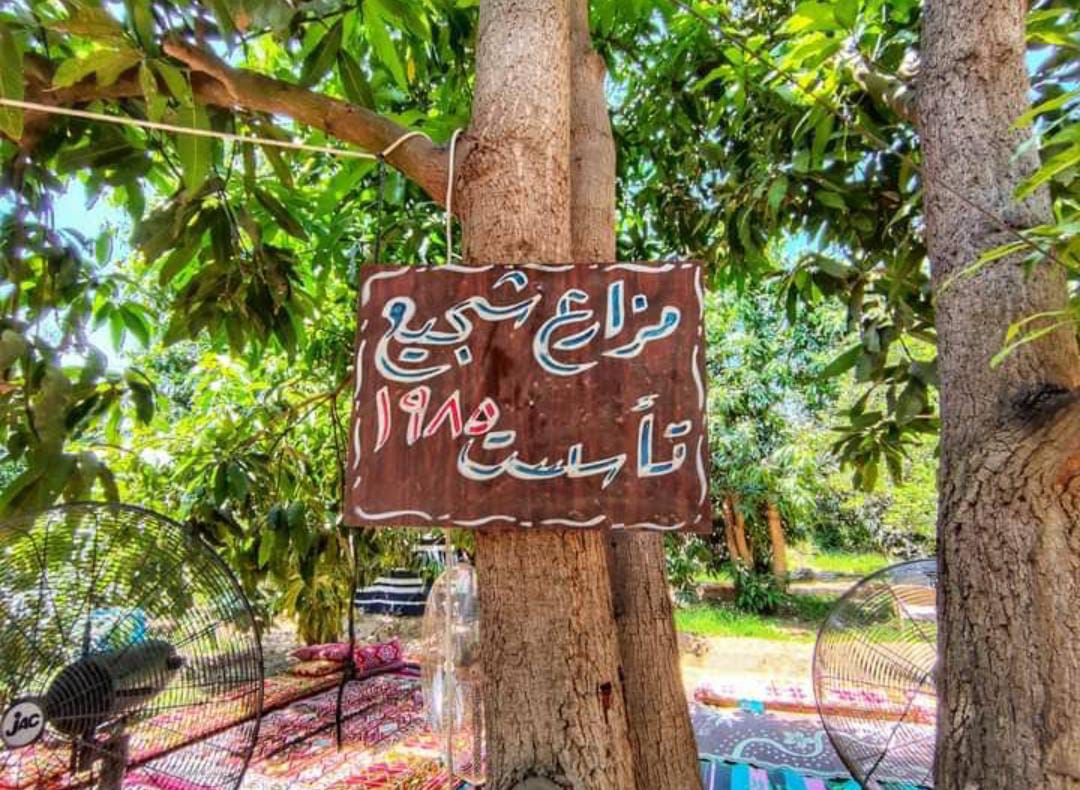 مزارع شجيع
تأسست ١٩٨٥
jac